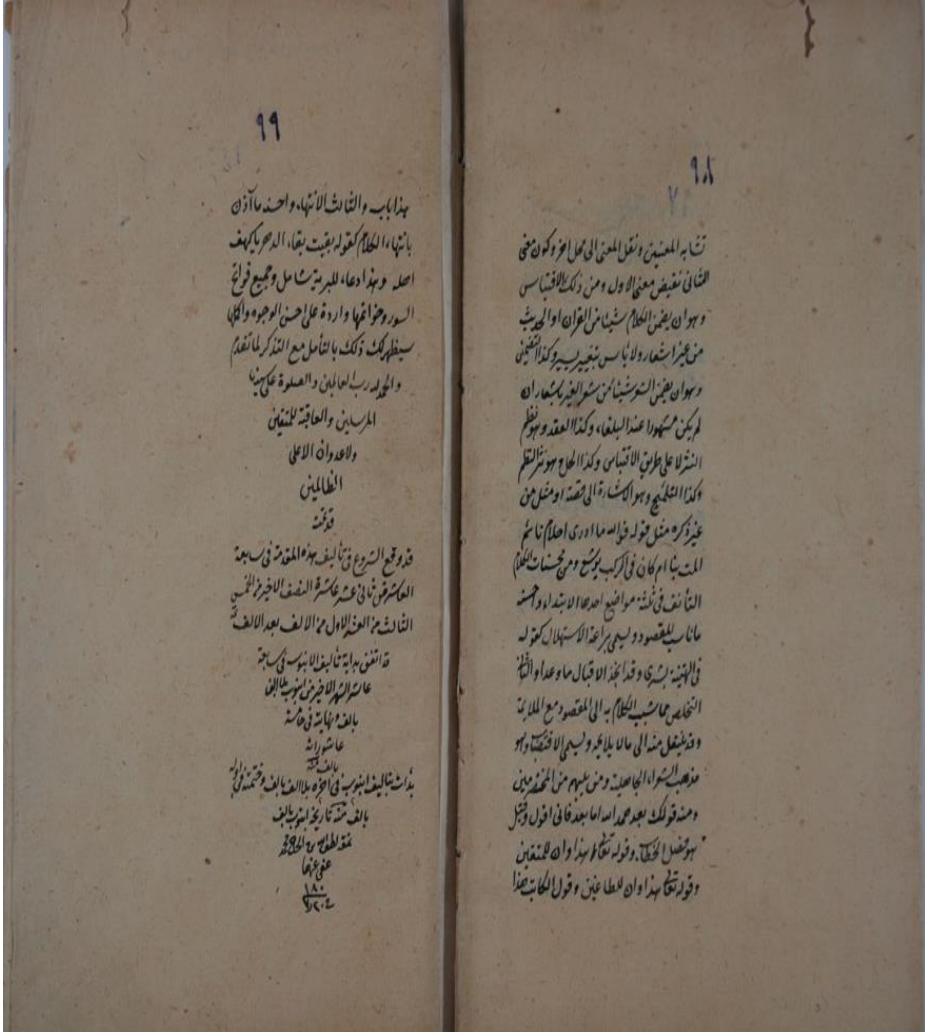 ٩٨
تشابه المعنيين ونقل المعنى الى محل اخر وكون معنى
الثانى نقيض معنى الاول ومن ذلك الاقتباس
وهو ان يضمن الكلام شيئا من القران او الحديث
من غير اشعار ولا باس بتغيير يسير وكذا التضمين
وهو ان يضمن الشعر شيئا من شعر الغير باشعار ان
لم يكن مشهورا عند البلغاء وكذا العقد وهو نظم
النثر لا على طريق الاقتباس وكذا الحل وهو نثر النظم
وكذا التلميح وهو الاشارة الى قصة او مثل من
غير ذكره مثل قوله فوالله ما ادرى احلام نائم
المت بنا ام كان فى الركب يوشع ومن محسنات الكلام
التأنف فى ثلثة مواضع احدها الابتداء واحسنه
ما ناسب للمقصود ويسمى براعة الاستهلال كقوله
فى التهنية بشرى وقد انجز الاقبال ما وعدا والثانى
التخلص مما شبب الكلام به الى المقصود مع الملائمة
وقد ينتقل منه الى ما لا يلائمه ويسمى الاقتضاب وهو
مذهب الشعراء الجاهلية ومن يليهم من المخضرمين
ومنه قولك بعد حمد الله اما بعد فانى اقول وقيل
هو فصل الخطاب وقوله تعالى هذا وان للمتقين
وقوله تعالى هذا وان للطاغين وقول الكاتب هذا
٩٩
هذا باب والثالث الانتهاء واحسنه ما آذن
بانتهاء الكلام كقوله بقيت بقاء الدهر يا كهف
اهله وهذا دعاء للبرية شامل وجميع فواتح
السور وخواتمها واردة على احسن الوجوه واكملها
سيظهر لك ذلك بالتأمل مع التذكر لما تقدم
والحمد لله رب العالمين والصلوة على
المرسلين والعاقبة للمتقين
ولا عدوان الا على
الظالمين
قد تمت
قد وقع الشروع فى تأليف هذه المقدمة فى سابعة
العاشر من ثانى عشر عاشرة النصف الاخير من الخمس
الثالث من العشر الاول من الالف بعد الالف
قد اتفق بداية تأليف الانبوب فى سابعة
عاشر الشهر الاخير من
بالف ونهايته فى خامسة
عاشورائه
بالف
بدأت بتأليف انبوب فى اخره بلا الف بالف وختمته فى اوله
بالف منه تاريخه انبوب بالف
عفى عنهما
١٨٠